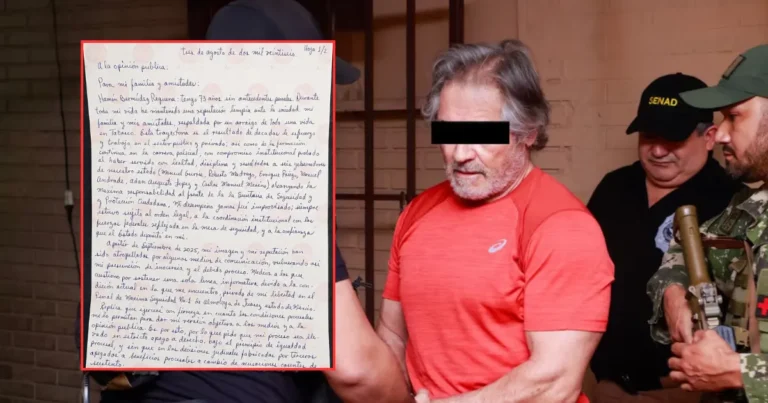 tres de agosto de dos mil veinticinco Hoja 1/2
A la opinión pública:
Para mi familia y amistades.
años sin antecedentes penales. Durante
toda mi vida he mantenido una reputación limpia ante la sociedad, mi
familia y mis amistades, respaldada por un arraigo de toda una vida
en Tabasco. Esta trayectoria es el resultado de décadas de esfuerzo
y trabajo en el sector público y privado, así como de la formación
continua en la carrera policial, un compromiso institucional probado
al haber servido con lealtad, disciplina y resultados a seis gobernadores
de nuestro estado (Manuel Roberto Madrazo, Enrique Manuel
Andrade, Adán Augusto López y Carlos Manuel Merino) alcanzando la
máxima responsabilidad al frente de la Secretaría de Seguridad y
Protección Ciudadana. Mi desempeño jamás fue improvisado; siempre
estuvo sujeto al orden legal, a la coordinación institucional con las
fuerzas federales reflejada en la mesa de seguridad, y a la confianza
que el Estado depositó en mí.
A partir de Septiembre de 2025, mi imagen y mi reputación han
sido atropelladas por algunos medios de comunicación, vulnerando así
mi presunción de inocencia y el debido proceso. Medios a los que
por sostener una sola línea informativa, dando a la con-
dición actual en la que me encuentro, privado de mi libertad en el
Penal de Máxima Seguridad No. 1 de Almoloya de Juárez estado de México.
Réplica que ejerceré con firmeza en cuanto las condiciones procesales
me lo permitan para dar mi versión objetiva a los medios y a la
opinión pública. Es por esto, por lo que pido que mi proceso sea lle-
vado en estricto apego a derecho, bajo el principio de igualdad
procesal, y sin que en las decisiones judiciales fabricadas por terceros
apegados a beneficios procesales a cambio de acusaciones carentes de
SENAD
asics